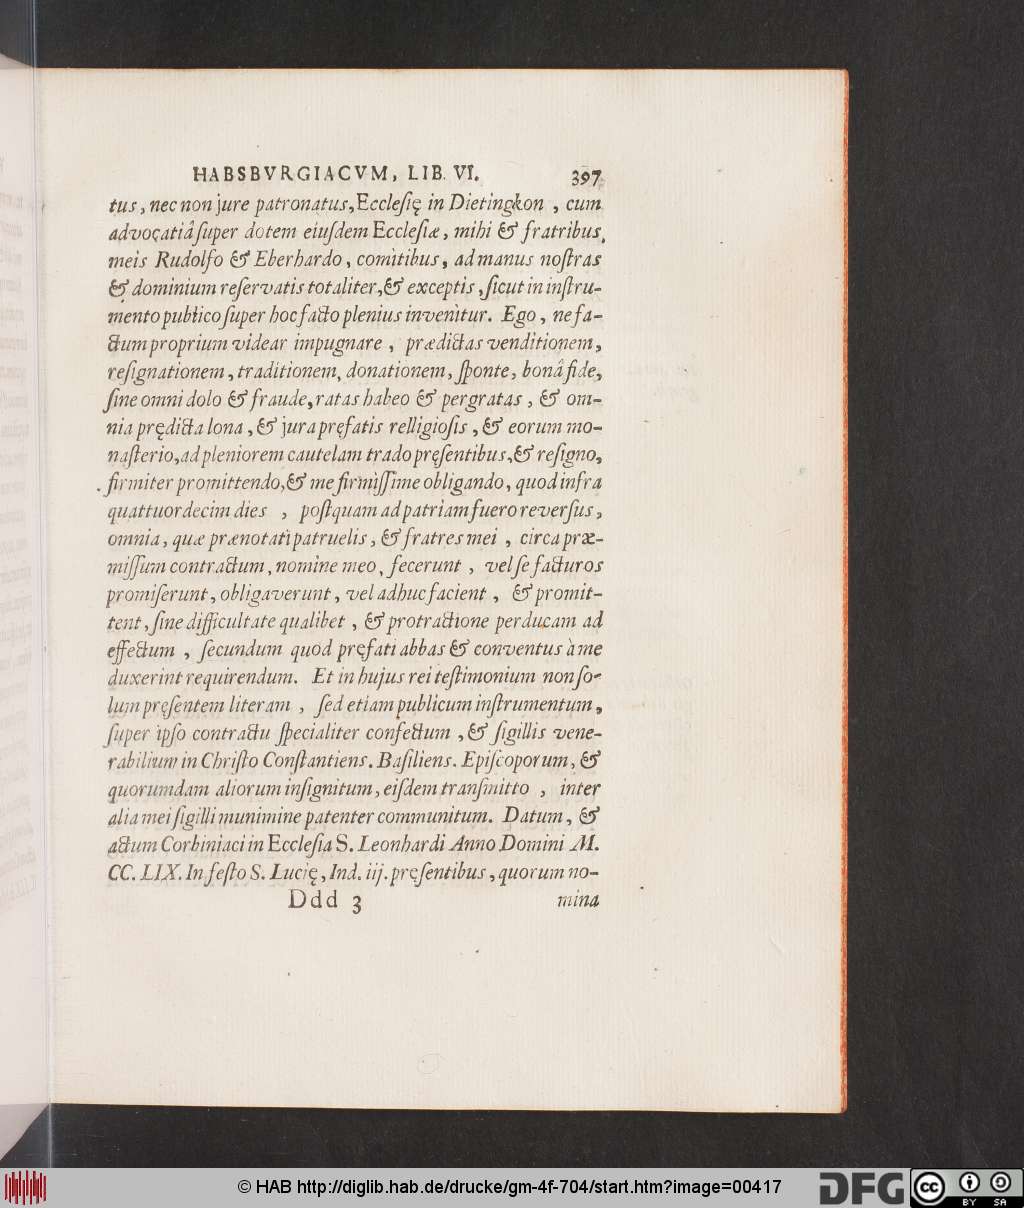 HABSBVRGIACVM, LIB. VI. 397
tus, nec non jure patronatus, Ecclesię in Dietingkon, cum
advocatiâ super dotem eiusdem Ecclesiæ, mihi & fratribus
meis Rudolfo & Eberhardo, comitibus, ad manus nostras
& dominium reservatis totaliter, & exceptis, sicut in instru-
mento publico super hoc facto plenius invenitur. Ego, ne fa-
ctum proprium videar impugnare, prædictas venditionem,
resignationem, traditionem, donationem, sponte, bonâ fide,
sine omni dolo & fraude, ratas habeo & pergratas, & om-
nia prędicta lona, & jura pręfatis relligiosis, & eorum mo-
nasterio, ad pleniorem cautelam trado pręsentibus, & resigno,
firmiter promittendo, & me firmissime obligando, quod infra
quattuordecim dies, postquam ad patriam fuero reversus,
omnia, quæ prænotati patruelis, & fratres mei, circa præ-
missum contractum, nomine meo, fecerunt, vel se facturos
promiserunt, obligaverunt, vel adhuc facient, & promit-
tent, sine difficultate qualibet, & protractione perducam ad
effectum, secundum quod pręfati abbas & conventus à me
duxerint requirendum. Et in hujus rei testimonium non so-
lum pręsentem literam, sed etiam publicum instrumentum,
super ipso contractu specialiter confectum, & sigillis vene-
rabilium in Christo Constantiens. Basiliens. Episcoporum, &
quorumdam aliorum insignitum, eisdem transmitto, inter
alia mei sigilli munimine patenter communitum. Datum, &
actum Corbiniaci in Ecclesia S. Leonhardi Anno Domini M.
CC. LIX. In festo S. Lucię, Ind. iij. pręsentibus, quorum no-
Ddd 3 mina
© HAB http://diglib.hab.de/drucke/gm-4f-704/start.htm?image=00417
DFG
cc BY SA